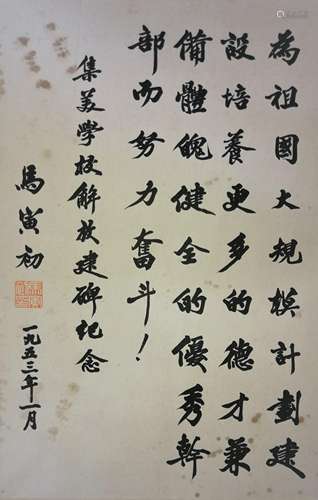 為祖國大規模計劃建
設培養更多的德才兼
備體魄健全的優秀幹
部而努力奮斗！
集美學校解放建碑紀念
馬寅初
一九五三年一月